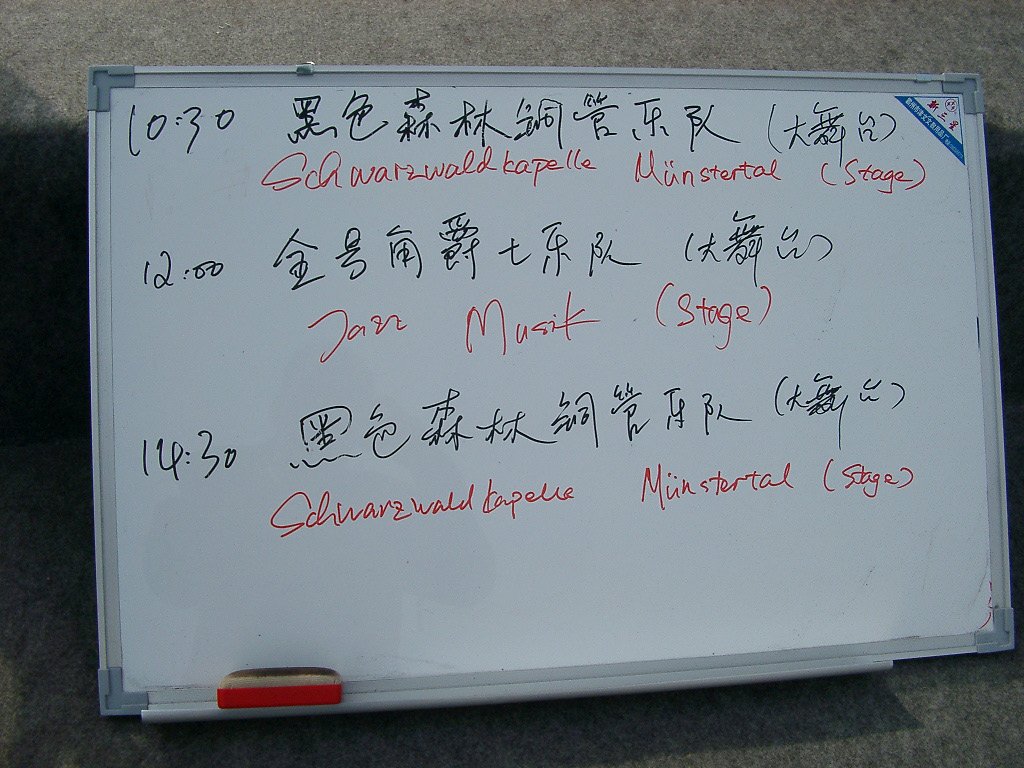 10:30 黑色森林铜管乐队 (大舞台)
Schwarzwaldkapelle Münstertal (Stage)
12:00 金号角爵士乐队 (大舞台)
Jazz Musik (Stage)
14:30 黑色森林铜管乐队 (大舞台)
Schwarzwaldkapelle Münstertal (Stage)
新三星